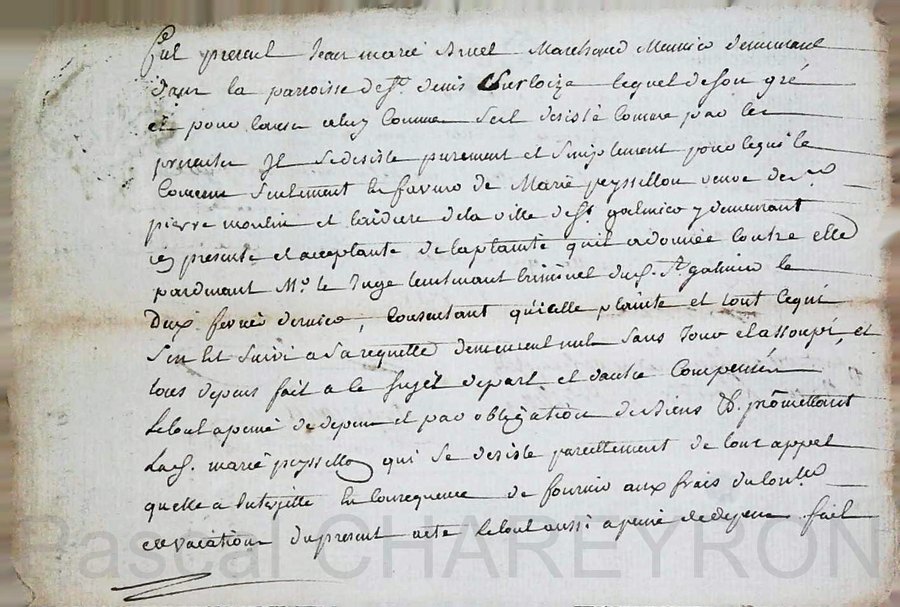 fut present Jean marie Bruel Marchand Meunier demeurant
dans la paroisse de St. denis Sur Coize lequel de son gré
et pour Cause celuy Comme Seil desisté Comme par les
presentes Il Sedesiste purement et Simplement pour lequi le
Concerne Seulement En faveur de Marie peyssellon veuve de
pierre moulin et laidiere dela ville de St. galmier y demeurant
icy presente et acceptante de laplainte quil adonnée Contre elle
pardevant Mr. le Juge lieutenant Criminel dud. St galmier le
Deux fevrier dernier, Consentant qu'icelle plainte et tout cequi
Sen Est Suivi a Sa requette demeurent nuls Sans Cour et assoupi, et
tous depens fait a le Sujet depart et dautre Compensés
letout apeine de depens et par obligation de Biens &. promettant
Lad. marie peyssellon qui Se desiste pareillement de tout appel
quelle a Interjetté En Consequence de fournir aux frais du Conlle
et vacations du present acte letout aussi apeine dedepens fait
Pascal CHAREYRON